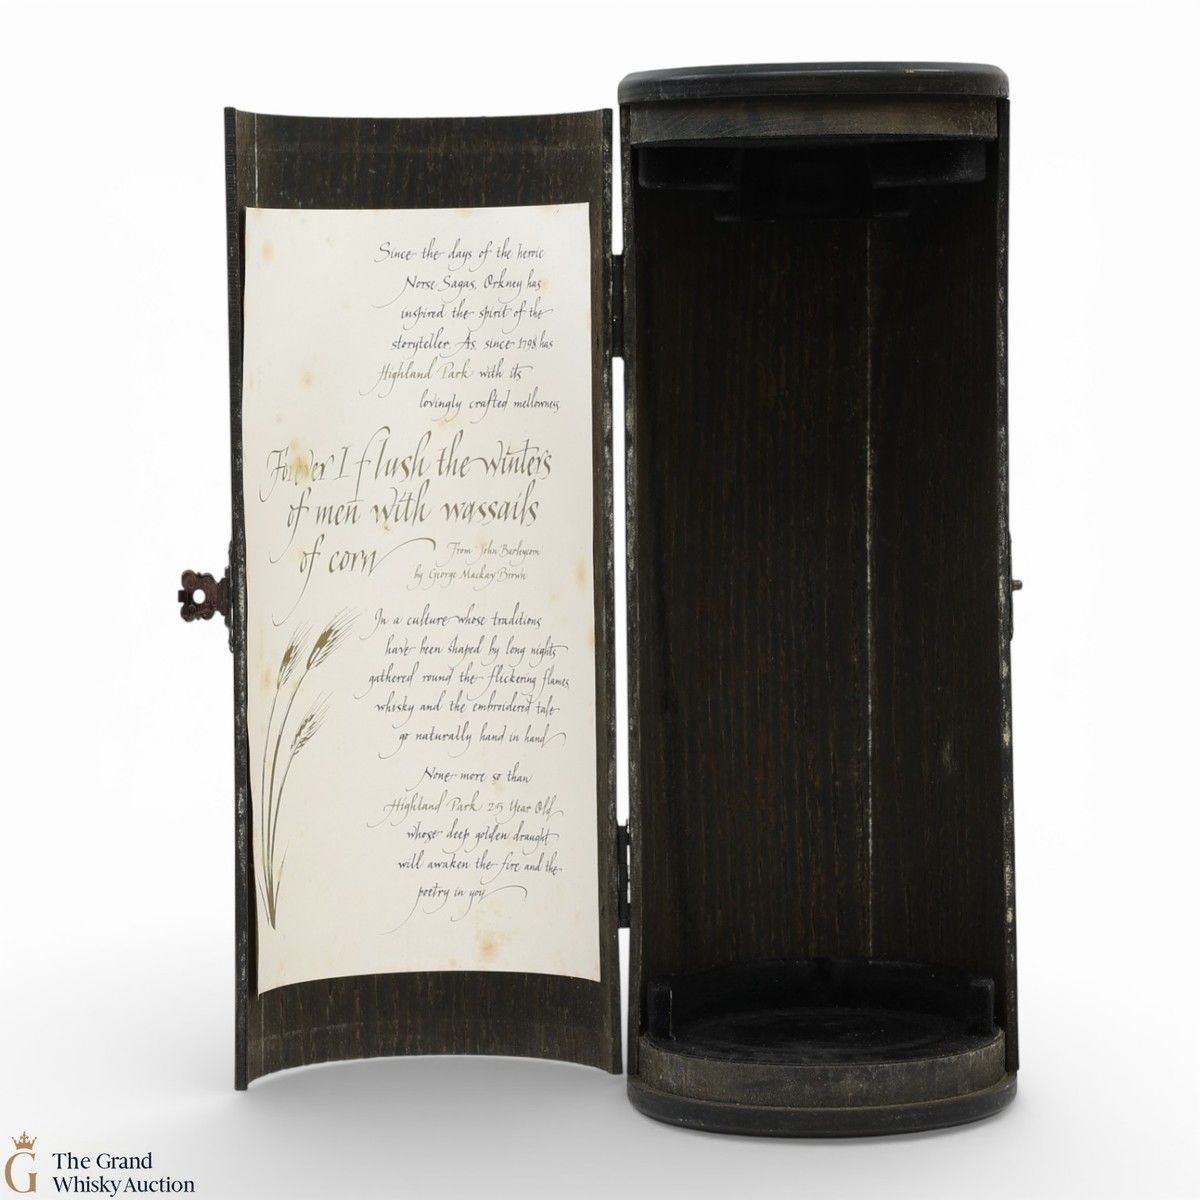 Since the days of the heroic
Norse Sagas, Orkney has
inspired the spirit of the
storyteller. As, since 1798 has
Highland Park with its
lovingly crafted mellowness.
Forever I flush the winters
of men with wassails
of corn
From John Barleycorn
by George Mackay Brown
In a culture whose traditions
have been shaped by long nights
gathered round the flickering flames,
whisky and the embroidered tale
go naturally hand in hand
None more so than
Highland Park 25 Year Old
whose deep golden draught
will awaken the fire and the
poetry in you
G
The Grand
Whisky Auction